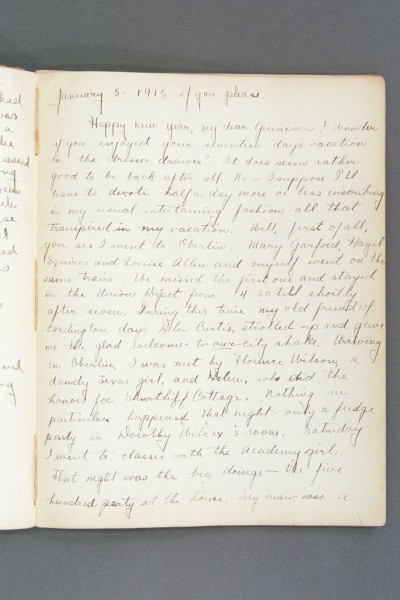 had
was
a
the
ng
se
ed
and
ng
January 5 - 1915 if you please.
Happy new year, my dear Guinevere! Wonder
if you enjoyed your seventeen days vacation
in the dresser drawer? It does seem rather
good to be back after all. Now I suppose I'll
have to devote half a day more or less inscribing
in my usual entertaining fashion all that
transpired in my vacation. Well, first of all,
you see I went to Oberlin. Mary Garford, Hazel
Squires and Louise Allen and myself went on the
same train. We missed the first one and stayed
in the Union Depot from 4 30 till shortly
after seven. During this time my old friend of
cardington days Glen Curtis, strolled up and gave
me the glad welcome-to-our-city shake. Arriving
in Oberlin, I was met by Florence Wilson, a
dandy Texas girl, and Helen, who did the
honors for Shurtliff Cottage. Nothing in
particular happened that night only a fudge
party in Dorothy Wilcox's room. Saturday
I went to classes with the Academy girls.
That night was the big doings - the five
hundred party at the house. My man was a